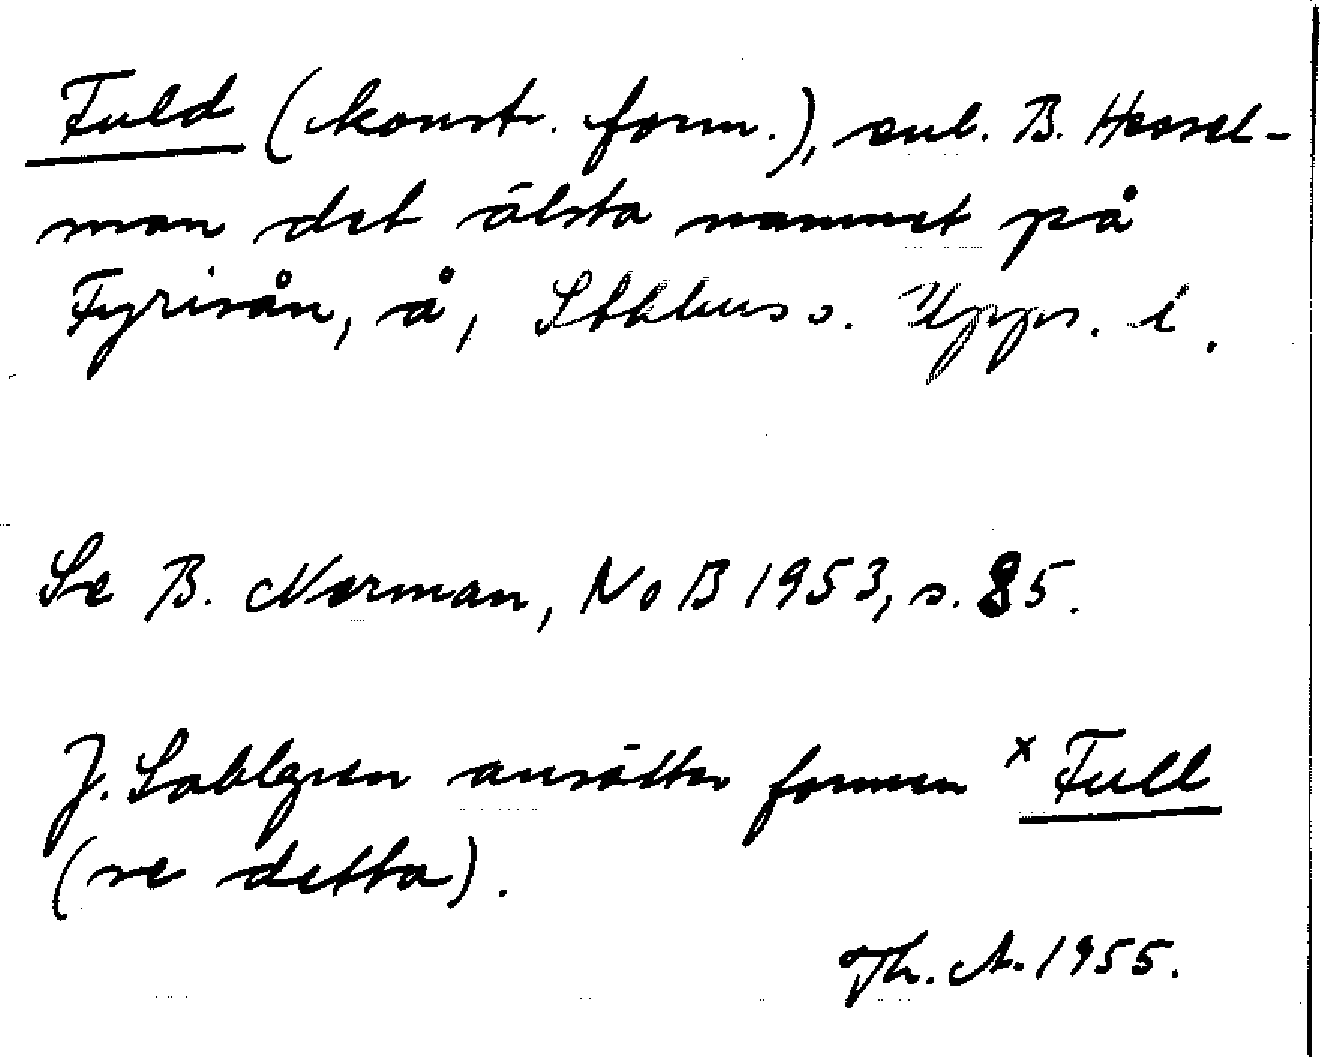 Fuld (konstr. form.), enl. B. Hessel-
man det älsta namnet på
Fyrisån, å, Sthlms o. Upps. l.
Se B. Norman, NoB 1953, s. 85.
J. Sahlgren ansätter formen × Full
(se detta).
Th. A. 1955.